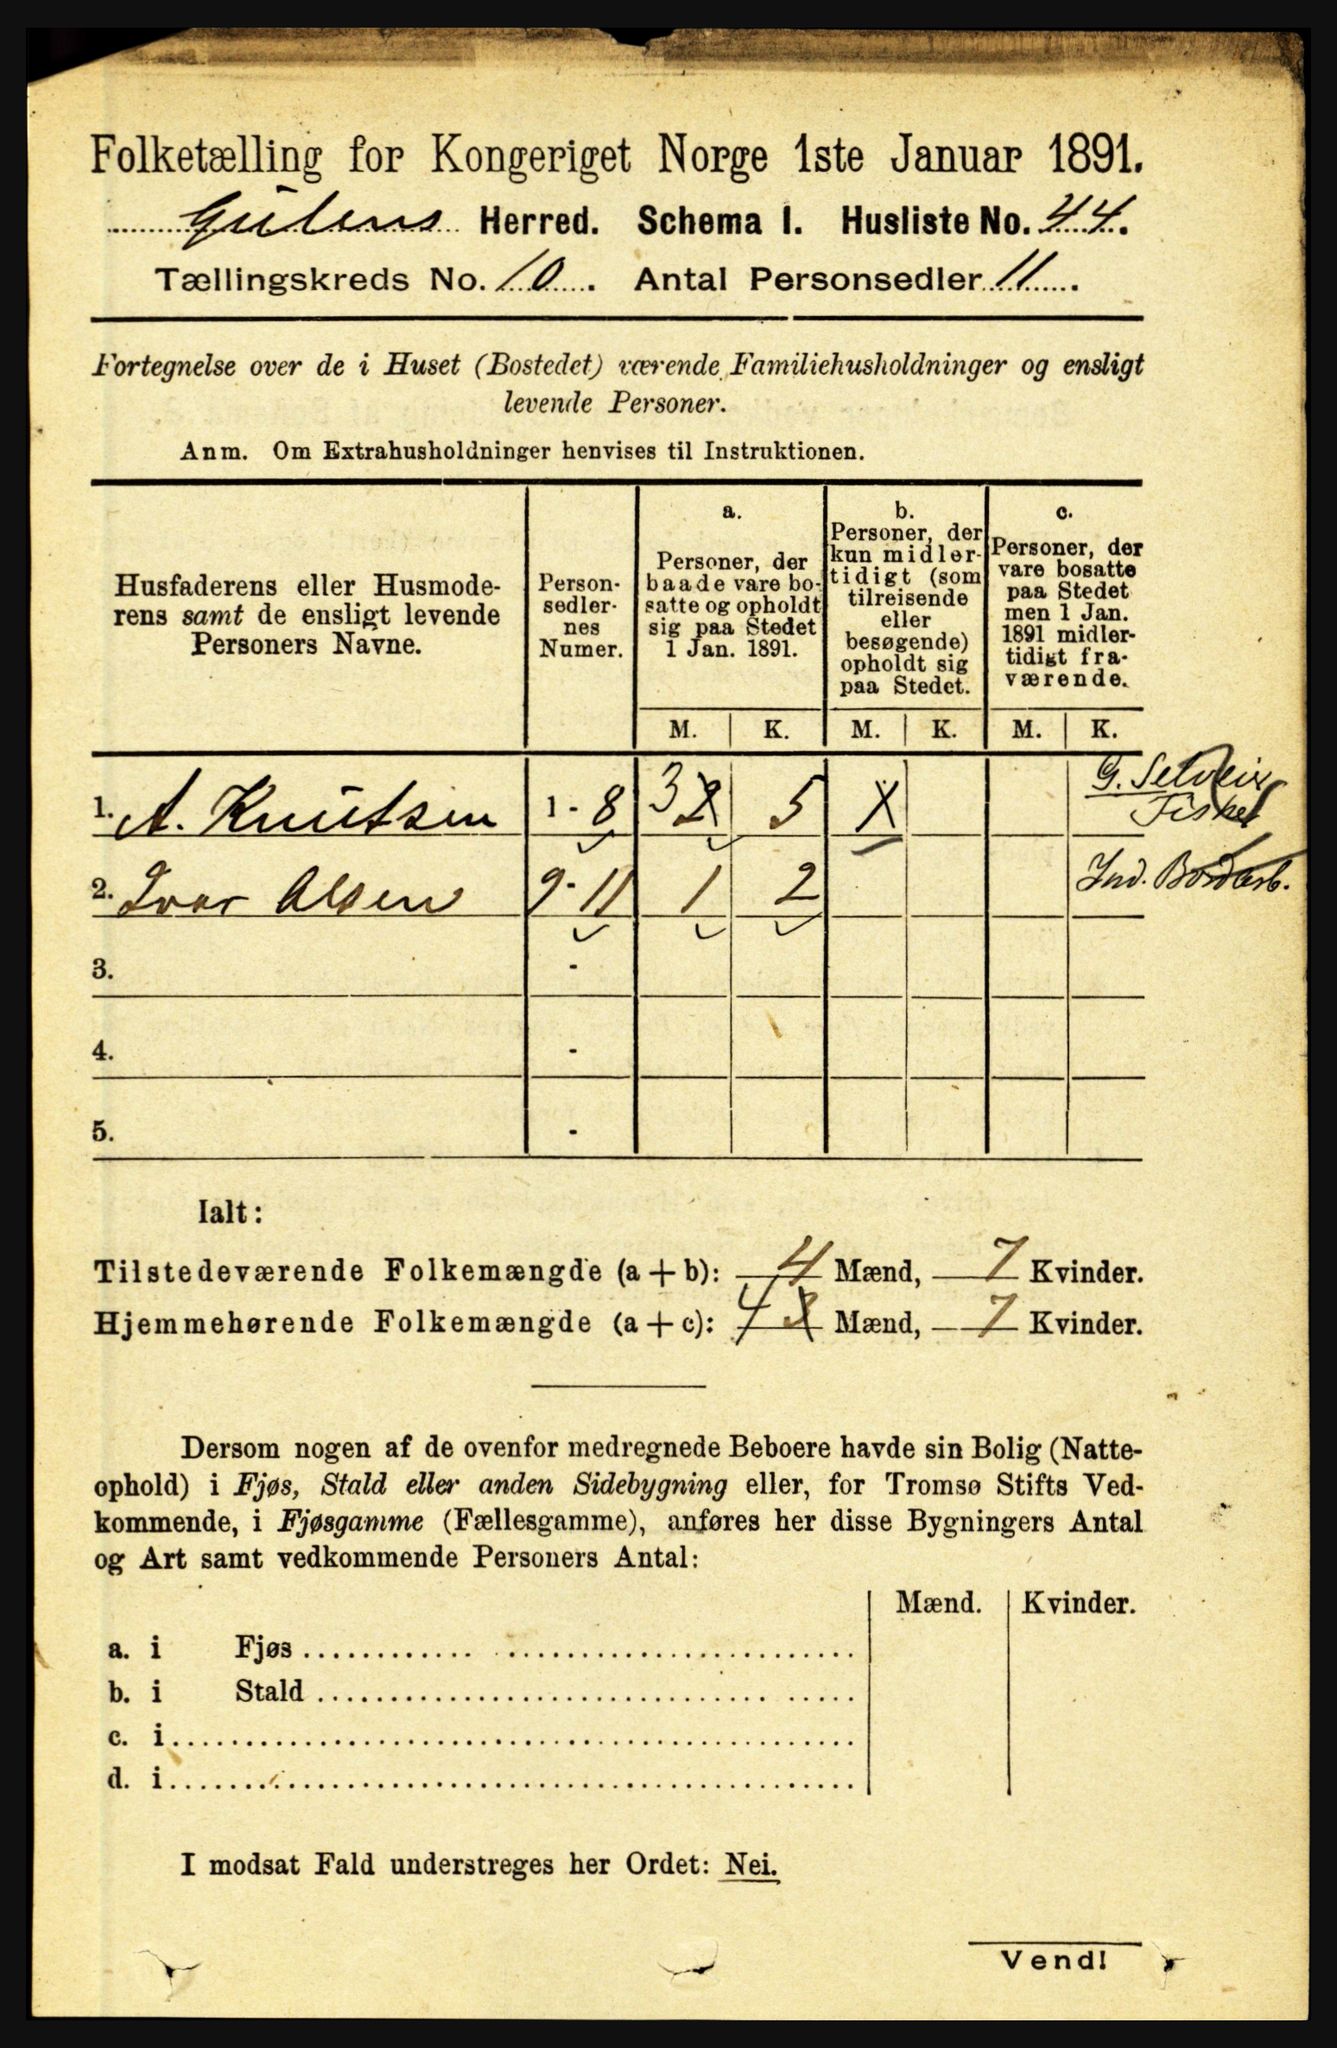 Folketælling for Kongeriget Norge 1ste Januar 1891.
Gulens Herred. Schema I. Husliste No. 44.
Tællingskreds No. 10. Antal Personsedler 11.
Fortegnelse over de i Huset (Bostedet) værende Familiehusholdninger og ensligt
levende Personer.
Anm. Om Extrahusholdninger henvises til Instruktionen.
Husfaderens eller Husmode-
rens samt de ensligt levende
Personers Navne.
Person-
sedler-
nes
Numer.
a.
Personer, der
baade vare bo-
satte og opholdt
sig paa Stedet
1 Jan. 1891.
b.
Personer, der
kun midler-
tidigt (som
tilreisende
eller
besøgende)
opholdt sig
paa Stedet.
c.
Personer, der
vare bosatte
paa Stedet
men 1 Jan.
1891 midler-
tidigt fra-
værende.
M. K. M. K. M. K.
1. A. Knutsen 1 - 8 3 2 5 X G. Selveier
Fisker
2. Ivar Olsen 9 - 11 1 2 Ind. Bordarb.
3. -
4. -
5. -
Ialt:
Tilstedeværende Folkemængde (a + b): 4 Mænd, 7 Kvinder.
Hjemmehørende Folkemængde (a + c): 4 3 Mænd, 7 Kvinder.
Dersom nogen af de ovenfor medregnede Beboere havde sin Bolig (Natte-
ophold) i Fjøs, Stald eller anden Sidebygning eller, for Tromsø Stifts Ved-
kommende, i Fjøsgamme (Fællesgamme), anføres her disse Bygningers Antal
og Art samt vedkommende Personers Antal:
Mænd. Kvinder.
a. i Fjøs
b. i Stald
c. i
d. i
I modsat Fald understreges her Ordet: Nei.
Vend!